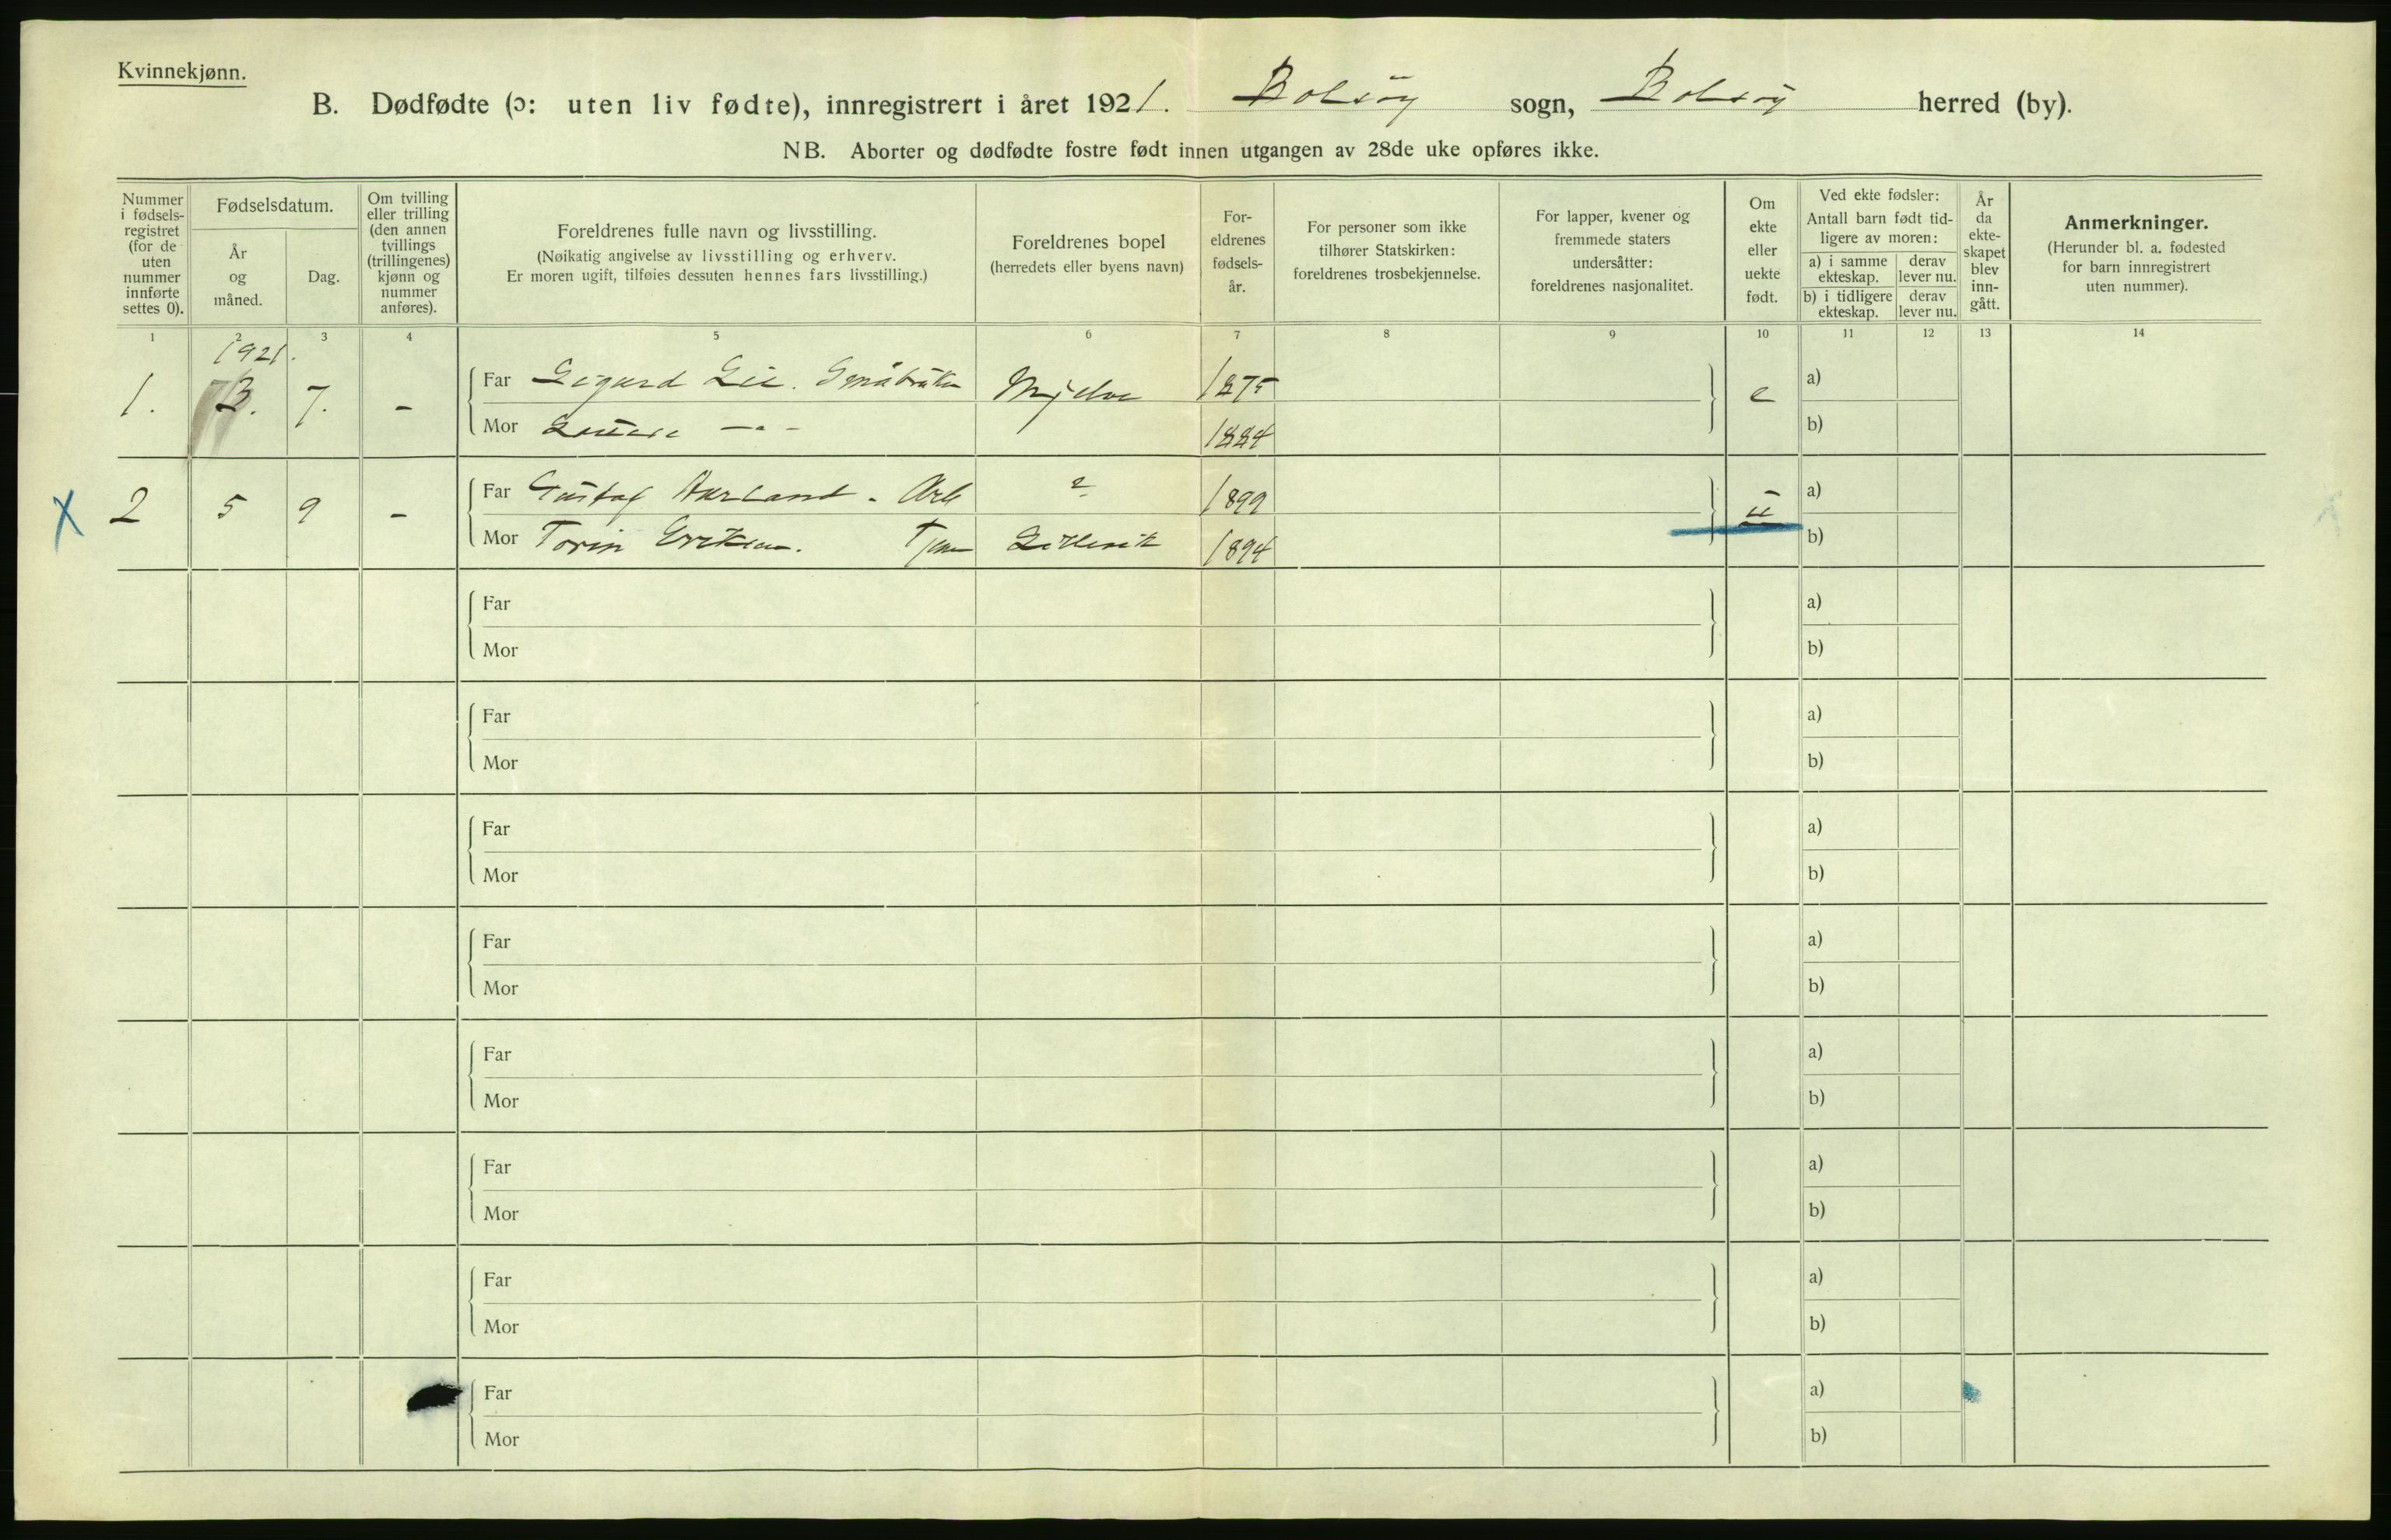 Kvinnekjønn.
B. Dødfødte (ɔ: uten liv fødte), innregistrert i året 1921. Bolsøy sogn, Bolsøy herred (by).
NB. Aborter og dødfødte fostre født innen utgangen av 28de uke opføres ikke.
Nummer i fødsels-registret (for de uten nummer innførte settes 0).
Fødselsdatum.
År og måned.
Dag.
Om tvilling eller trilling (den annen tvillings (trillingenes) kjønn og nummer anføres).
Foreldrenes fulle navn og livsstilling.
(Nøikatig angivelse av livsstilling og erhverv.
Er moren ugift, tilføies dessuten hennes fars livsstilling.)
Foreldrenes bopel
(herredets eller byens navn)
For-eldrenes fødsels-år.
For personer som ikke tilhører Statskirken: foreldrenes trosbekjennelse.
For lapper, kvener og fremmede staters undersåtter: foreldrenes nasjonalitet.
Om ekte eller uekte født.
Ved ekte fødsler:
Antall barn født tid-ligere av moren:
a) i samme ekteskap.
derav lever nu.
b) i tidligere ekteskap.
derav lever nu.
År da ekte-skapet blev inn-gått.
Anmerkninger.
(Herunder bl. a. fødested for barn innregistrert uten nummer).
1 2 3 4 5 6 7 8 9 10 11 12 13 14
1921.
1. 3. 7. - Far Sigurd Lie. Småbruker Mjelve 1875 e a)
Mor -"- 1884 b)
X 2 5 9 - Far Gustaf Aarland. Arb ? 1899 u a)
Mor Torin Eriksen. Tjen 1894 b)
Far a)
Mor b)
Far a)
Mor b)
Far a)
Mor b)
Far a)
Mor b)
Far a)
Mor b)
Far a)
Mor b)
Far a)
Mor b)
Far a)
Mor b)